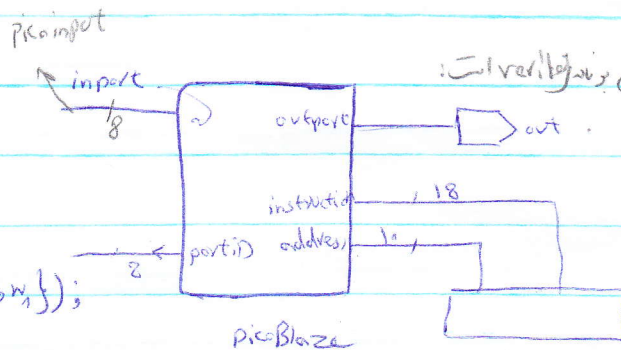 picoinput
inport
8
outport
out
instruction
18
portID
8
address
10
w1});
picoBlaze